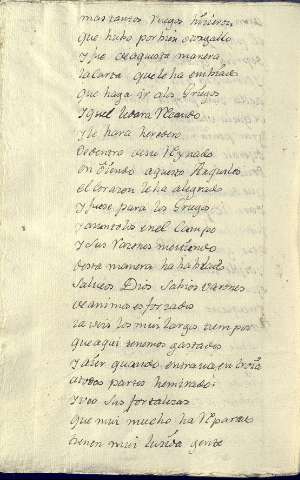 mas tantos Ruegos hizieron
que hubo por bien otorgallo
y fue de aquesta manera
la Carta que le ha embiado
que haga ir a los Griegos
y quel
y le hara heredero
de dentro deste Reynado
en aquesto
el corazon le ha alegrado
y fuese para los Griegos
y en el Campo
y sus Razones
desta manera ha hablado
salveos Dios sabios varones
de animo esforzado
ia veis los mui largos tiempos
que aqui tenemos gastados
y aier quando entrava en troia
a todas partes he mirado
y veo sus fortalezas
que mui mucho ha Reparado
tienen mui luzida gente